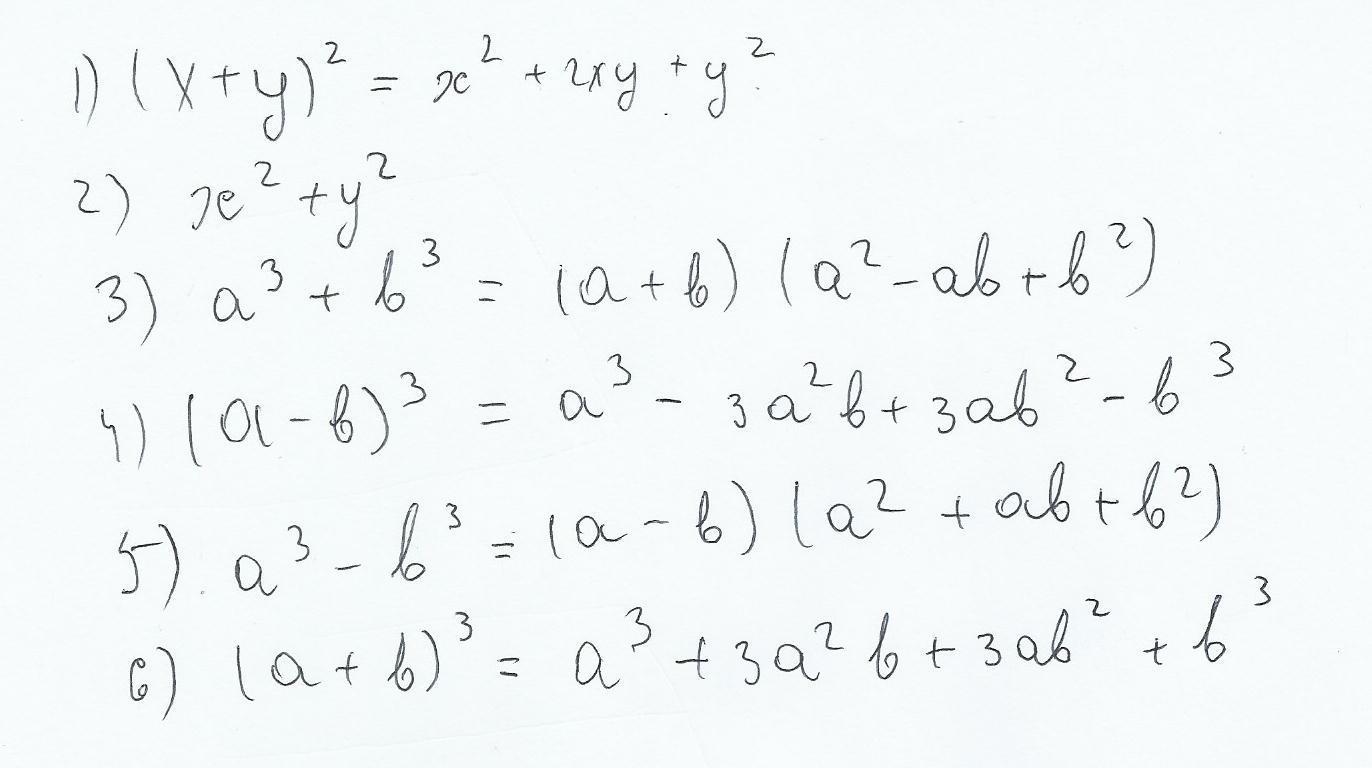 1) (x+y)² = x² + 2xy + y²
2) x² + y²
3) a³ + b³ = (a + b) (a² - ab + b²)
4) (a - b)³ = a³ - 3a²b + 3ab² - b³
5) a³ - b³ = (a - b) (a² + ab + b²)
6) (a + b)³ = a³ + 3a²b + 3ab² + b³